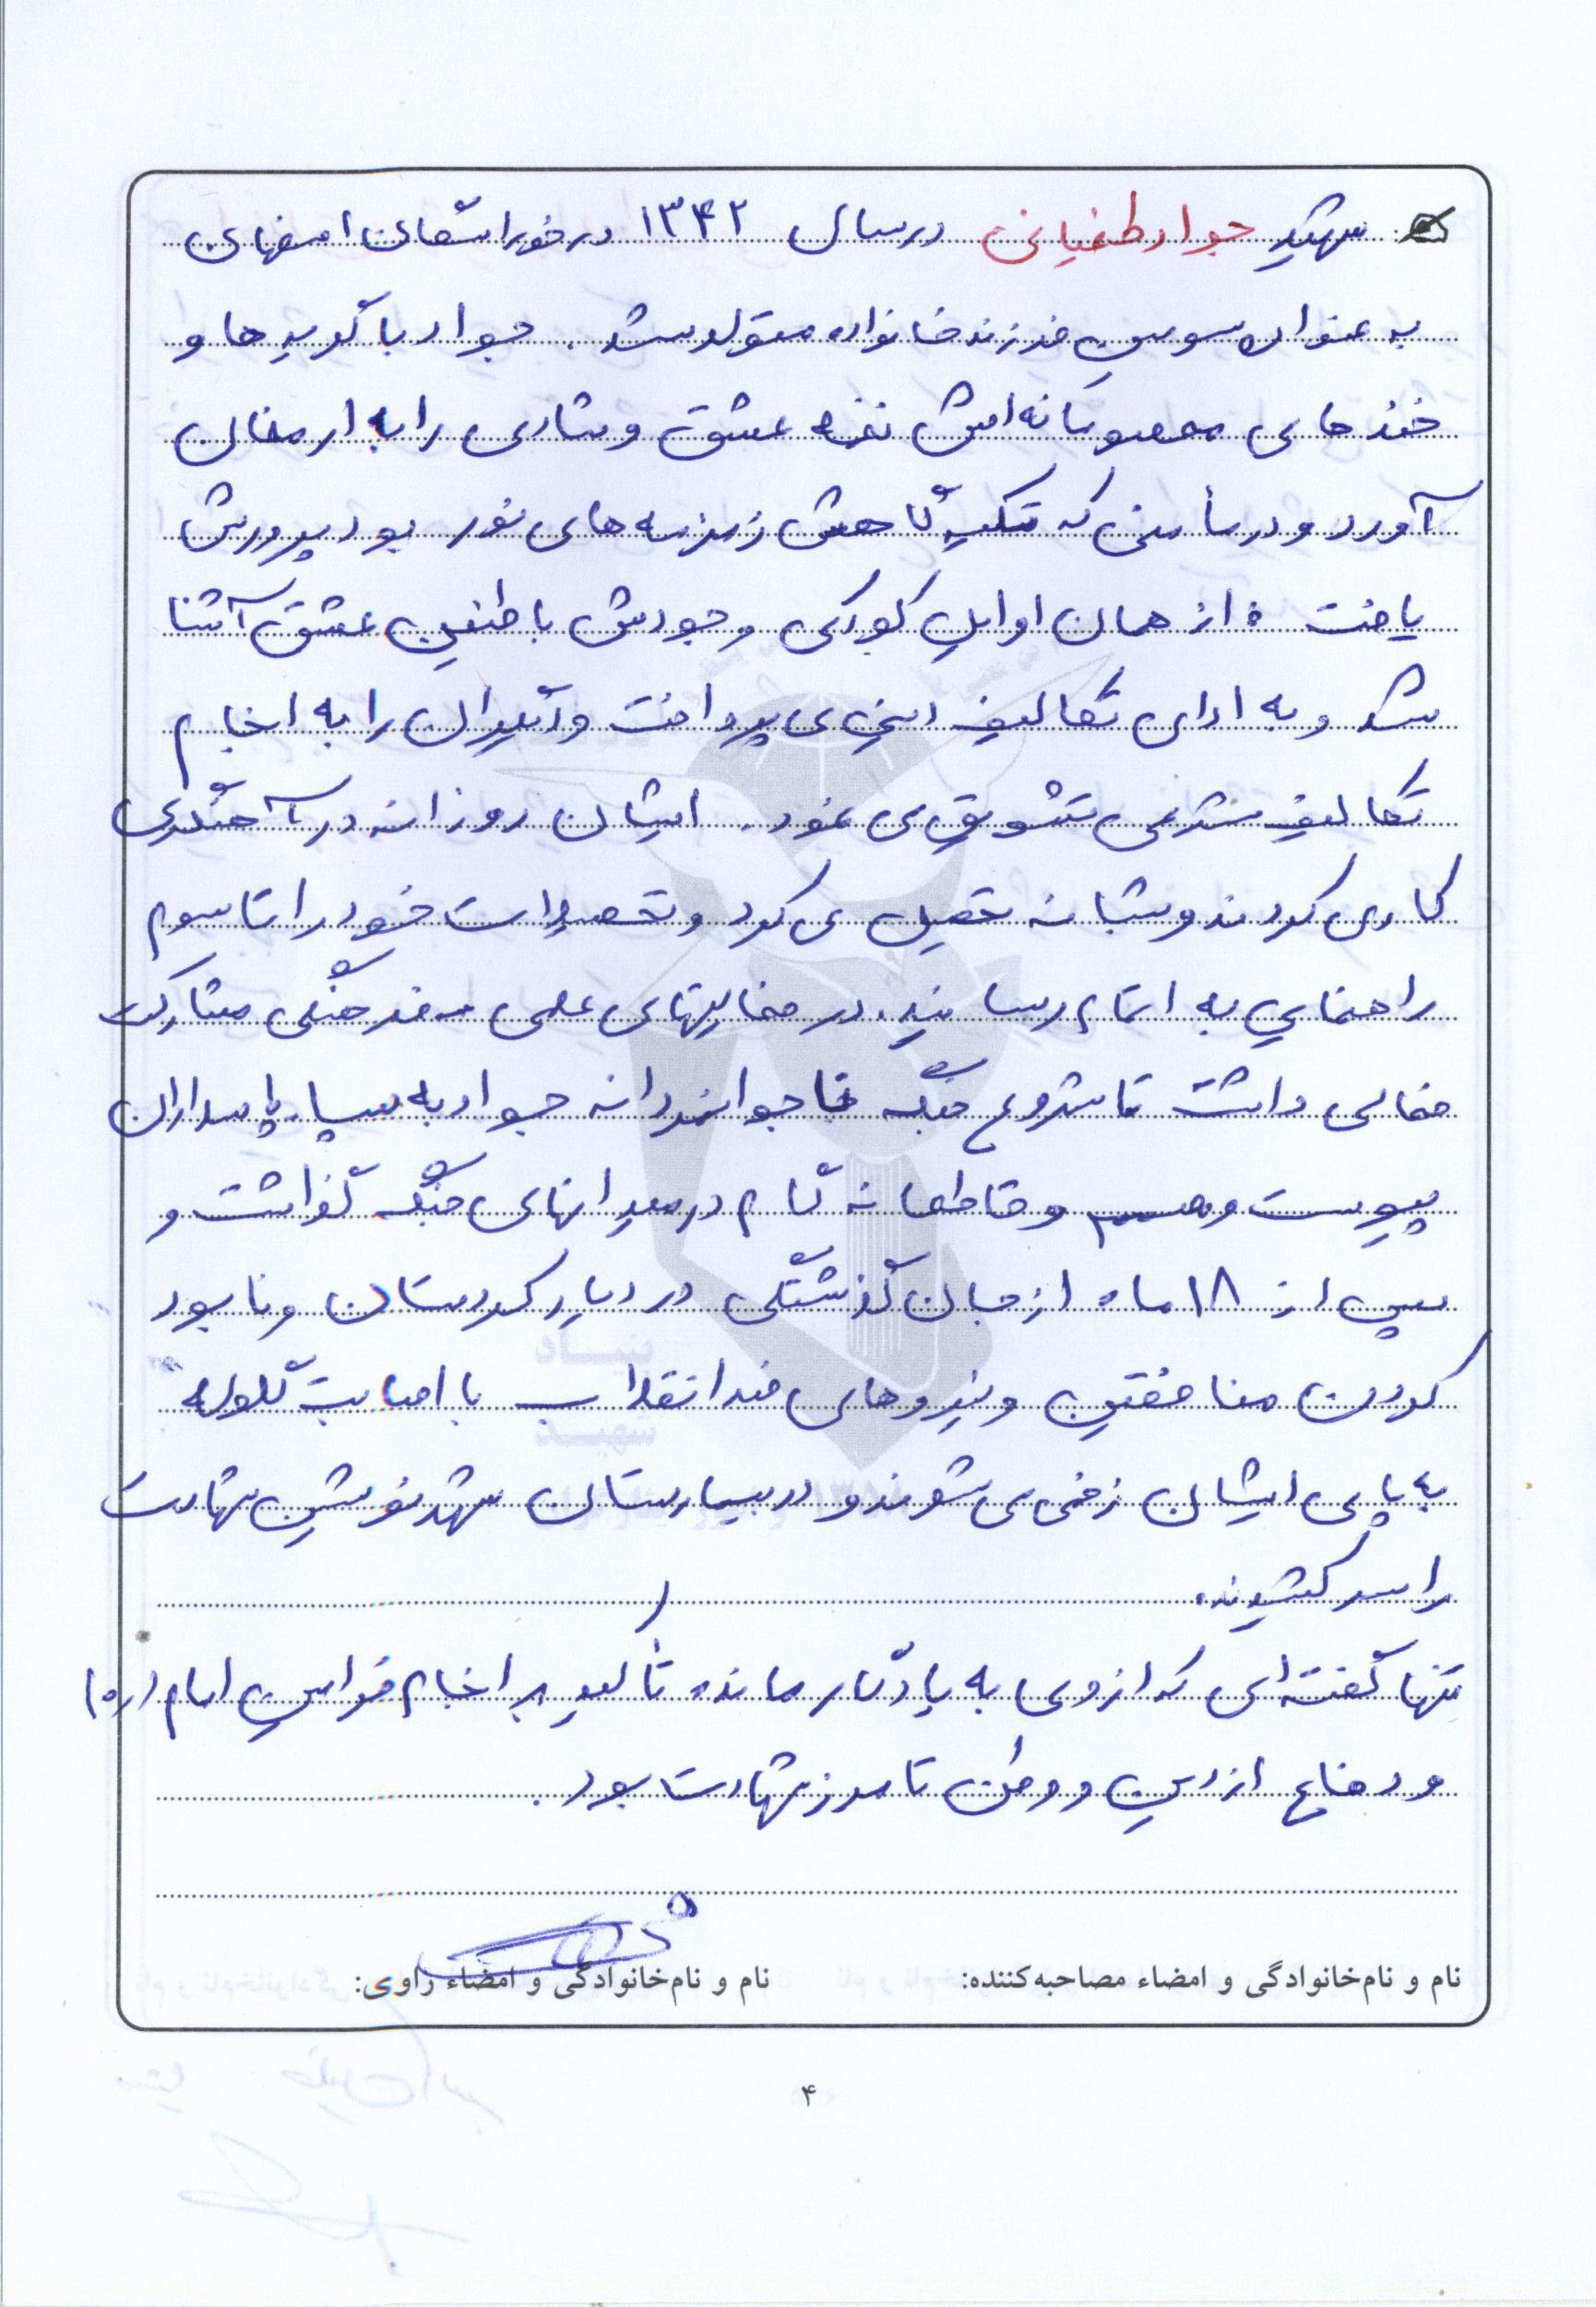 شهید جواد طغیانی در سال ۱۳۴۲ در خوراسگان اصفهان
به عنوان سومین فرزند خانواده متولد شد. جواد با گریه ها و
خنده های معصومانه اش نغمه عشق و شادی را به ارمغان
آورد و در مأمنی که تکیه گاهش زمزمه های نور بود پرورش
یافت. از همان اوایل کودکی وجودش با طنین عشق آشنا
شد و به ادای تکالیف دینی می پرداخت و دیگران را به انجام
تکالیف شرعی تشویق می نمود. ایشان روزانه در آهنگری
کار می کردند و شبانه تحصیل می کرد و تحصیلات خود را تا سوم
راهنمایی به اتمام رسانید. در فعالیتهای علمی - فرهنگی مشارکت
فعالی داشت تا شروع جنگ جوانمردانه جواد به سپاه پاسداران
پیوست و مصمم و قاطعانه گام در میدانهای جنگ گذاشت و
پس از ۱۸ ماه از جان گذشتگی در دیار کردستان و نابود
کردن منافقین و نیروهای ضد انقلاب با اصابت گلوله
به پای ایشان زخمی می شوند و در بیمارستان شهد نوشین شهادت
را سر کشیدند.
تنها گفته ای که از وی به یادگار مانده تأکید بر انجام فرامین امام (ره)
و دفاع از دین و وطن تا مرز شهادت بود.
نام و نام‌خانوادگی و امضاء مصاحبه‌کننده: نام و نام‌خانوادگی و امضاء راوی:
۴